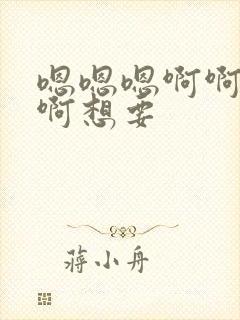 嗯嗯嗯啊啊
啊想要
蒋小舟